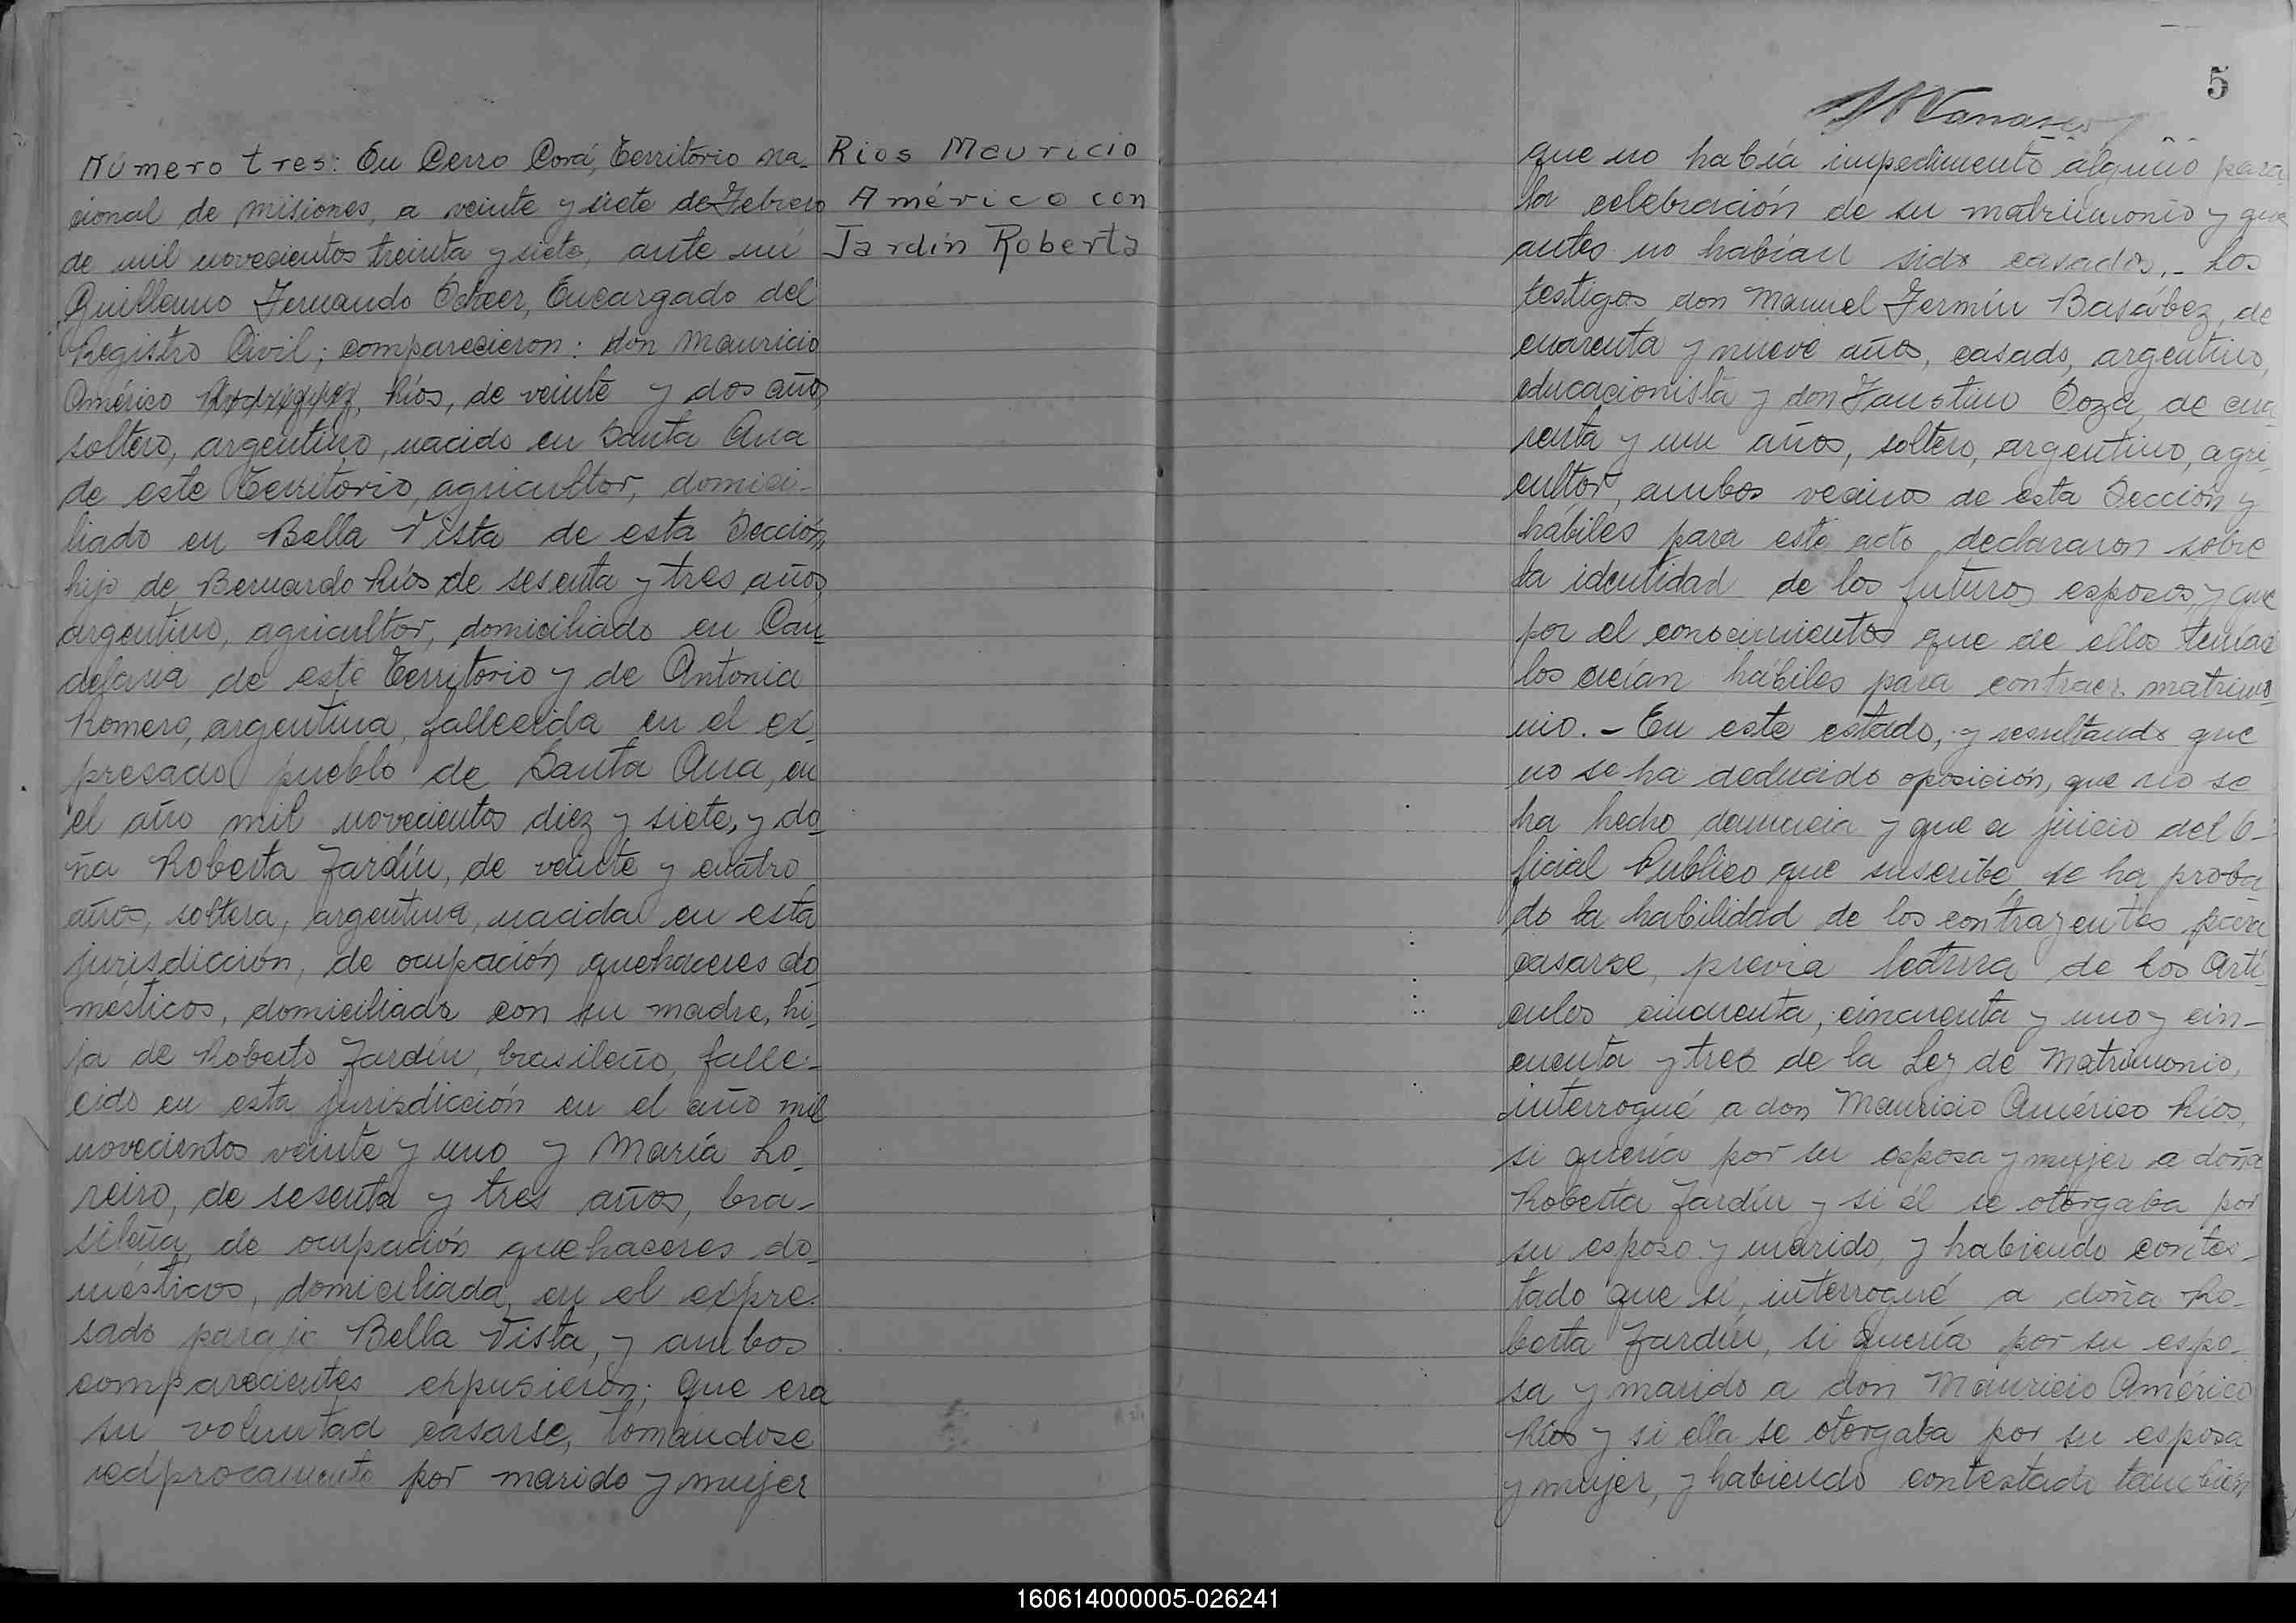 Número tres: En Cerro Corá, Territorio na-
cional de misiones, a veinte y siete de Febrero
de mil novecientos treinta y siete, ante mi
Guillermo Fernando Scheer, Encargado del
Registro Civil; comparecieron: don Mauricio
Américo Ríos, de veinte y dos años
soltero, argentino, nacido en Santa Ana
de este Territorio, agricultor, domici-
liado en Bella Vista de esta Sección
hijo de Bernardo Ríos de sesenta y tres años,
argentino, agricultor, domiciliado en Can-
delaria de este Territorio y de Antonia
Romero, argentina, fallecida en el ex-
presado pueblo de Santa Ana, en
el año mil novecientos diez y siete, y do-
ña Roberta Jardín, de veinte y cuatro
años, soltera, argentina, nacida en esta
jurisdicción, de ocupación quehaceres do-
mésticos, domiciliada con su madre, hi-
ja de Roberto Jardín, brasileño, falle-
cido en esta jurisdicción en el año mil
novecientos veinte y uno y María Lo-
reiro, de sesenta y tres años, bra-
sileña, de ocupación quehaceres do-
mésticos, domiciliada, en el expre-
sado paraje Bella Vista, y ambos
comparecientes expusieron; que era
su voluntad casarse, tomándose
recíprocamente por marido y mujer
Rios Mauricio
Américo con
Jardín Roberta
5
que no había impedimento alguno para
la celebración de su matrimonio y que
antes no habían sido casados,- Los
testigos don Manuel Fermín Basábez, de
cuarenta y nueve años, casado, argentino,
educacionista y don Faustino Soza, de cua-
renta y un años, soltero, argentino, agri-
cultor, ambos vecinos de esta Sección y
hábiles para este acto, declararon sobre
la identidad de los futuros esposos, y que
por el conocimientos que de ellos tenían
los creían hábiles para contraer matrimo-
nio.- En este estado, y resultando que
no se ha deducido oposición, que no se
ha hecho denuncia y que a juicio del O-
ficial Publico que suscribe, se ha proba
do la habilidad de los contrayentes para
casarse, previa lectura de los Artí-
culos cincuenta, cincuenta y uno y cin-
cuenta y tres de la Ley de Matrimonio,
interrogué a don Mauricio Américo Ríos,
si quería por su esposa y mujer a doña
Roberta Jardín y si él se otorgaba por
su esposo y marido, y habiendo contes-
tado que sí, interrogué a doña Ro-
berta Jardín, si quería por su espo-
so y marido a don Mauricio Américo
Ríos y si ella se otorgaba por su esposa
y mujer, y habiendo contestado también
160614000005-026241